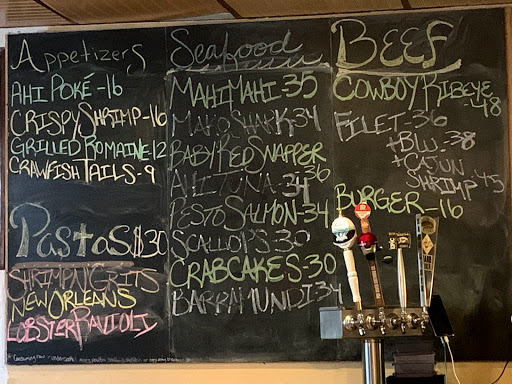 Appetizers
AHI POKÉ -16
CRISPY SHRIMP -16
GRILLED ROMAINE -12
CRAWFISH TAILS - 9
Pastas $30
SHRIMP N GRITS
NEW ORLEANS
LOBSTER RAVIOLI
Seafood
MAHI MAHI - 35
MAKO SHARK - 34
BABY RED SNAPPER
36
AHI TUNA - 34
PESTO SALMON - 34
SCALLOPS - 30
CRABCAKES - 30
BARRAMUNDI - 34
BEEF
COWBOY RIBEYE
-48
FILET - 36
+ BLU - 38
+ CAJUN
SHRIMP - 45
BURGER - 16